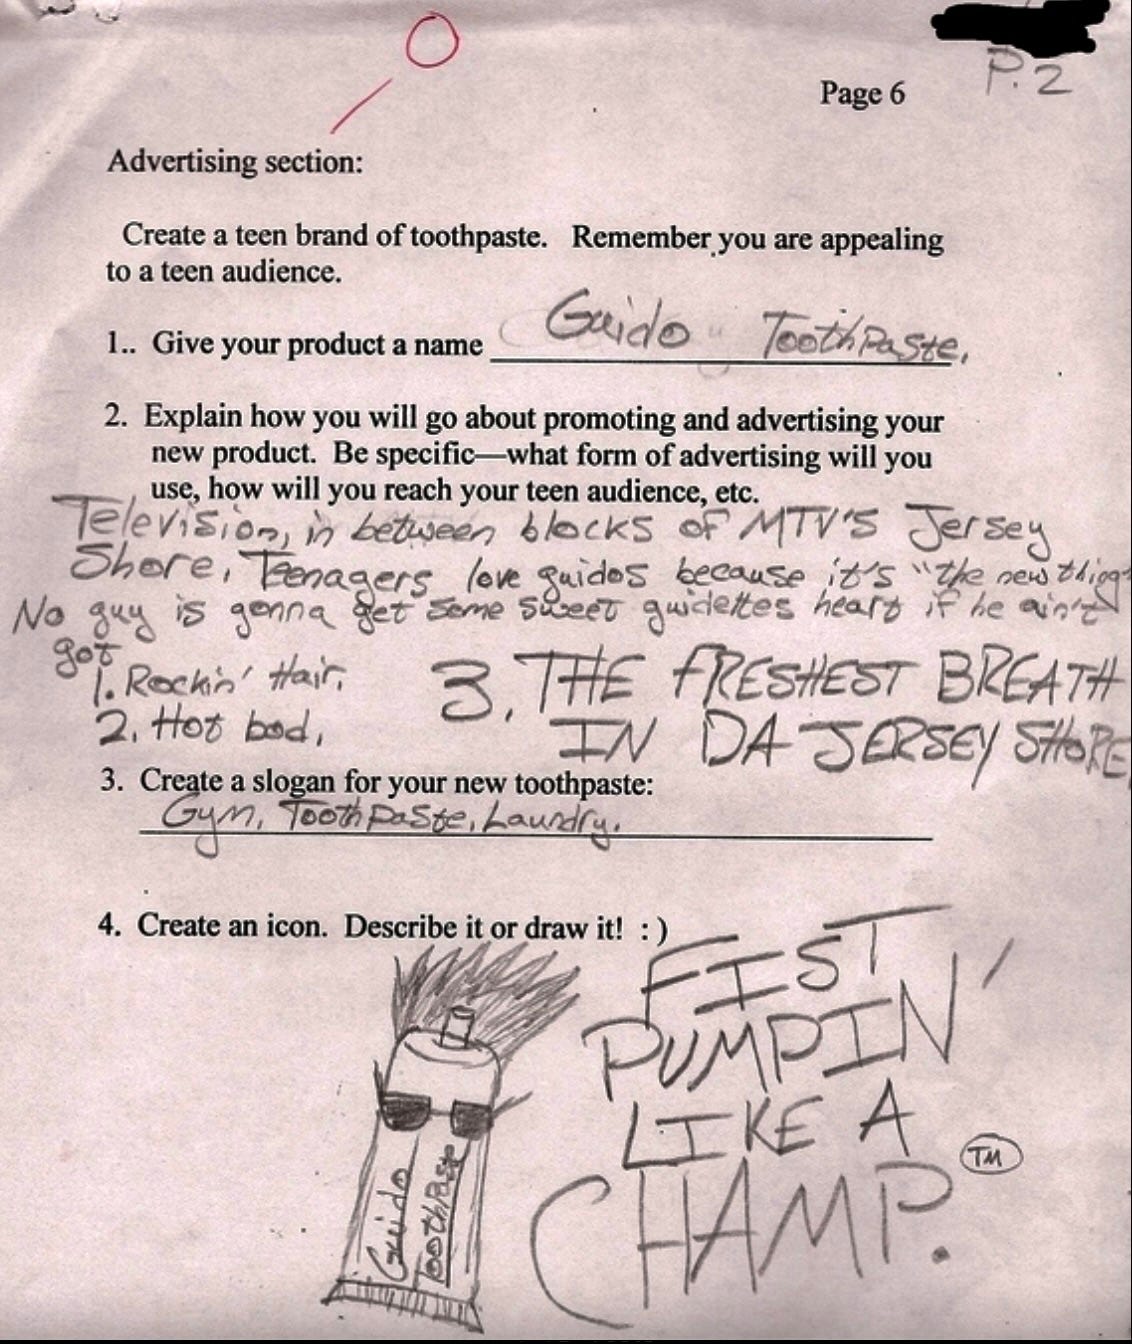 -0
P.2
Page 6
Advertising section:
Create a teen brand of toothpaste. Remember you are appealing
to a teen audience.
1.. Give your product a name Guido ToothPaste.
2. Explain how you will go about promoting and advertising your
new product. Be specific—what form of advertising will you
use, how will you reach your teen audience, etc.
Television, in between blocks of MTV'S Jersey
Shore. Teenagers love guidos because it's "the new thing
No guy is gonna get some sweet guidettes heart if he ain't
got
1. Rockin' Hair.
2. Hot bod.
3. THE FRESHEST BREATH
IN DA JERSEY SHORE
3. Create a slogan for your new toothpaste:
Gym, ToothPaste, Laundry.
4. Create an icon. Describe it or draw it! : )
FIST
PUMPIN'
LIKE A
CHAMP.
TM
Guido
ToothPaste